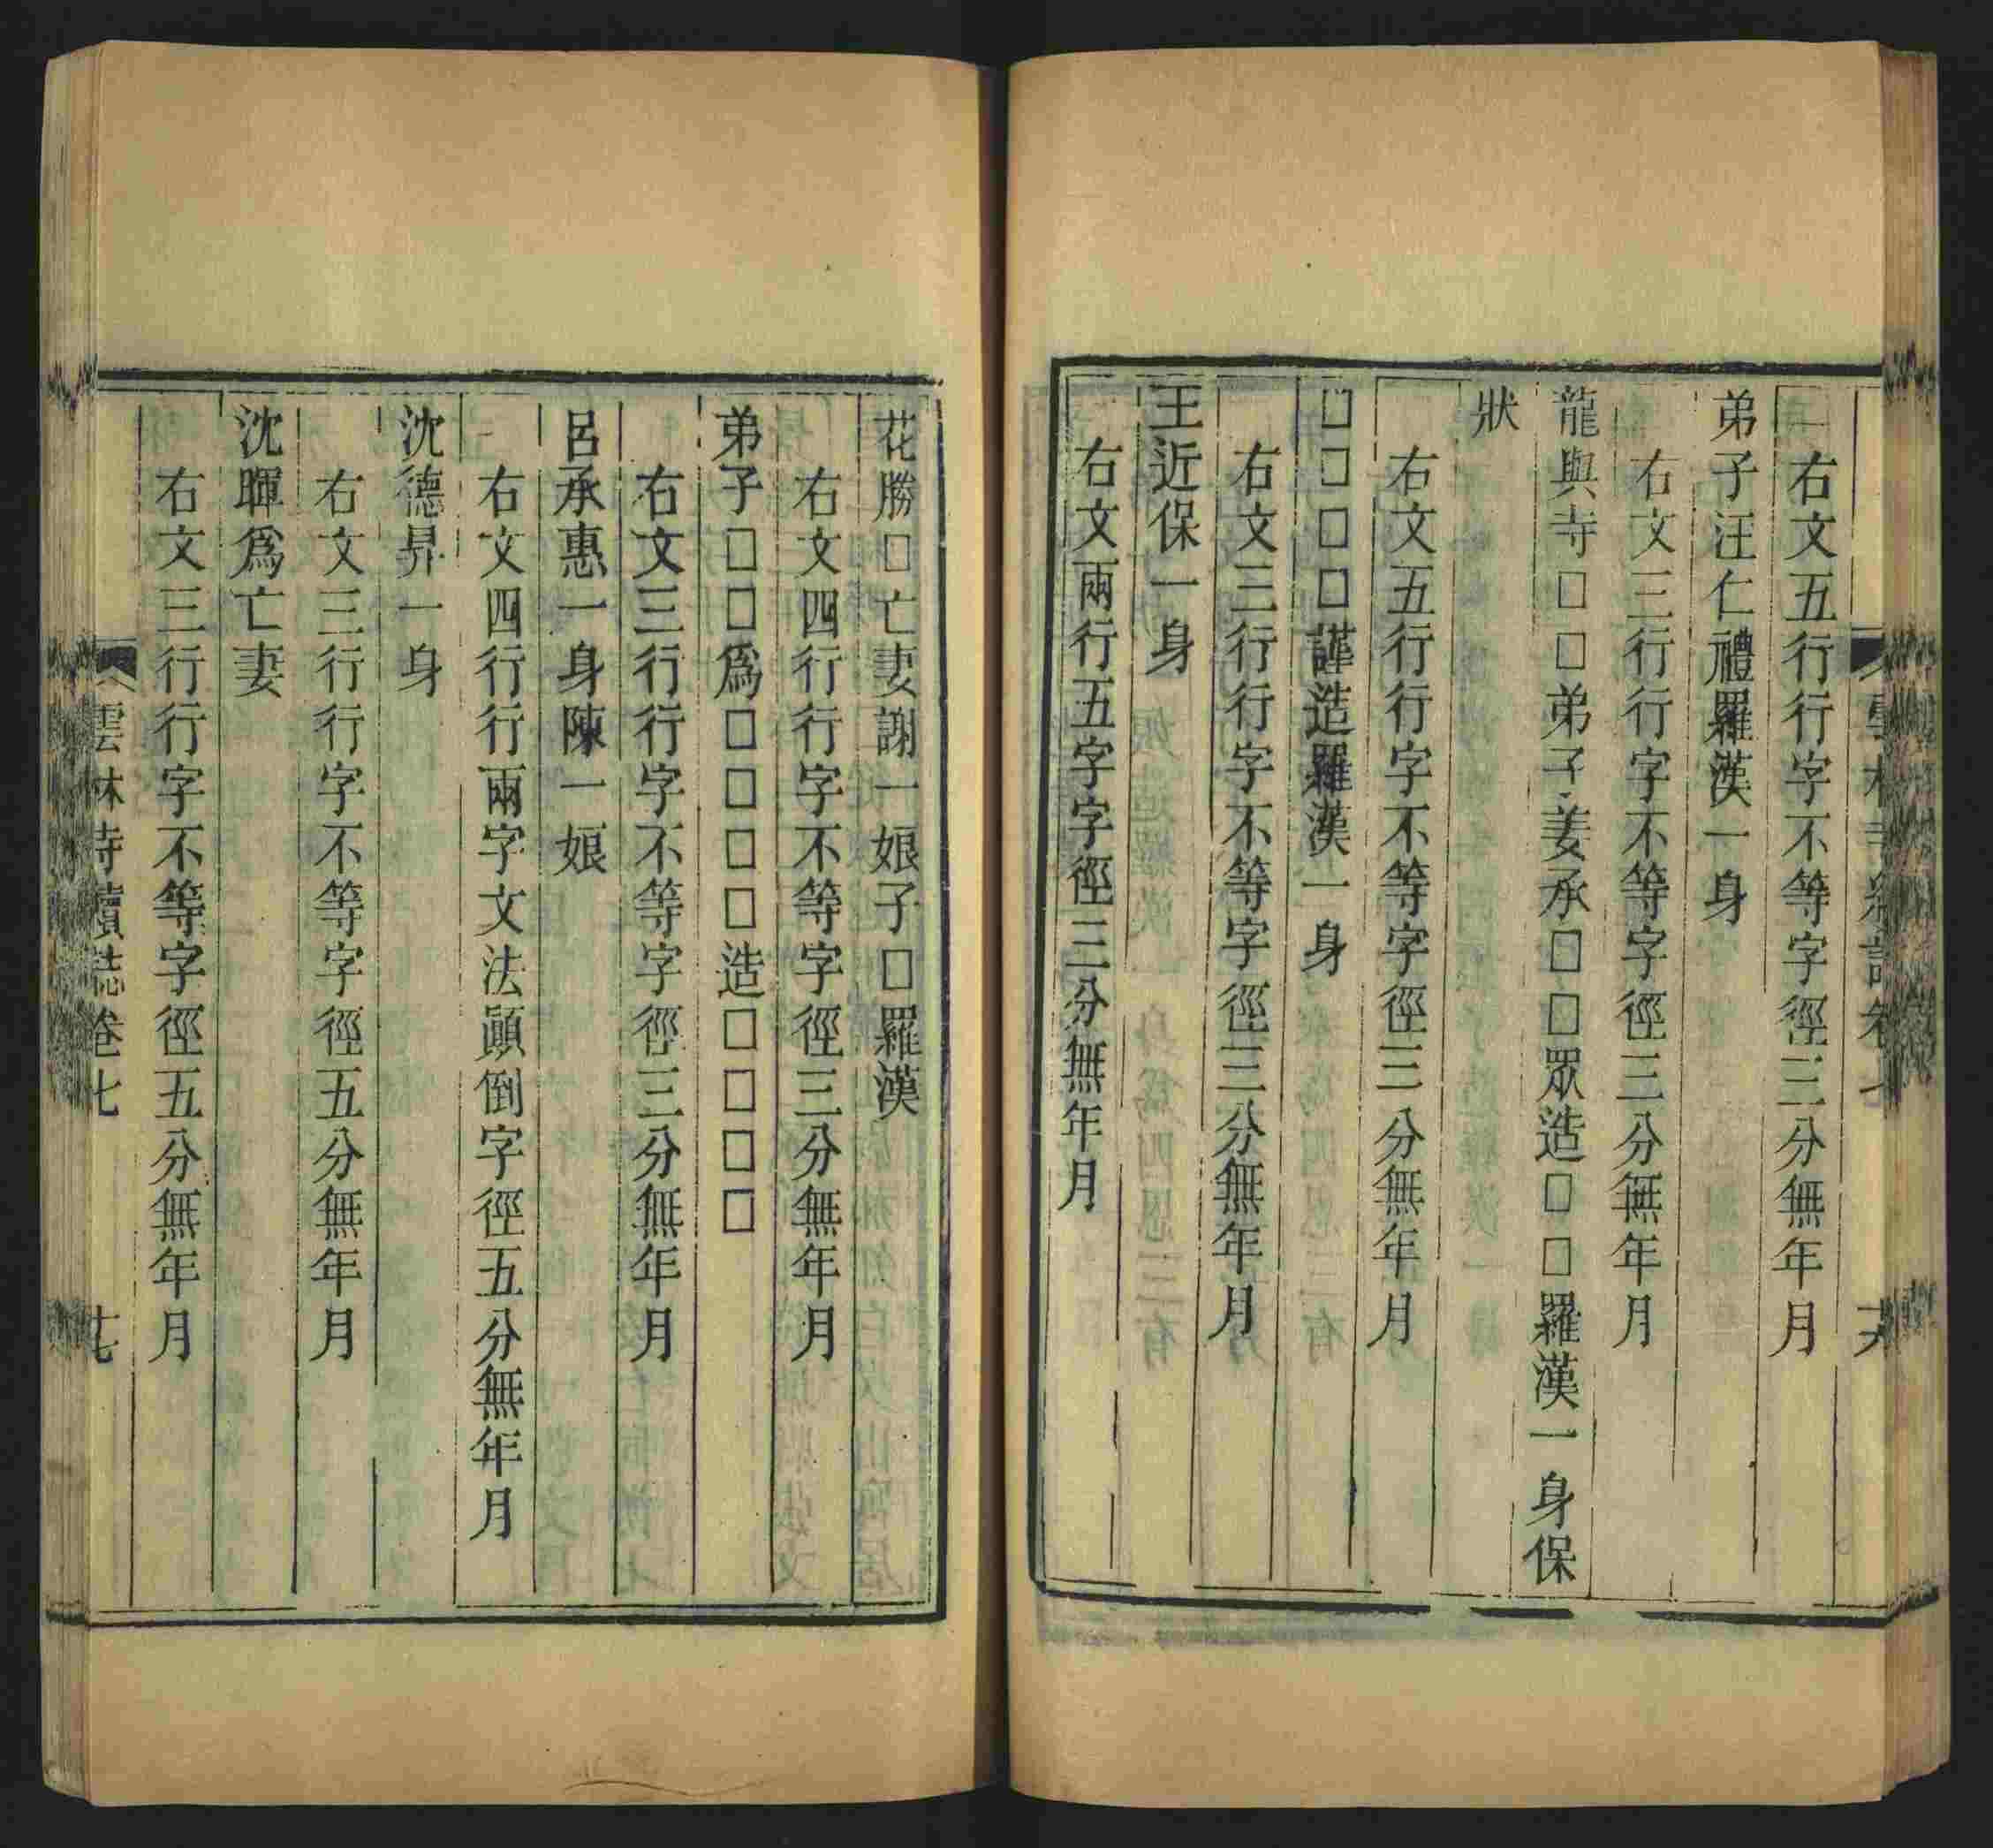 右文五行行字不等字徑三分無年月
弟子汪仁禮羅漢一身
右文三行行字不等字徑三分無年月
龍興寺□□弟子姜承□□眾造□□羅漢一身保
狀
右文五行行字不等字徑三分無年月
□□□□謹造羅漢一身
右文三行行字不等字徑三分無年月
王近保一身
右文兩行行五字字徑三分無年月
花勝□亡妻謝一娘子□羅漢
右文四行行字不等字徑三分無年月
弟子□□爲□□□□造□□□□
右文三行行字不等字徑三分無年月
呂承惠一身陳一娘
右文四行行兩字文法顚倒字徑五分無年月
沈德昇一身
右文三行行字不等字徑五分無年月
沈暉爲亡妻
右文三行行字不等字徑五分無年月
雲林寺續誌卷七